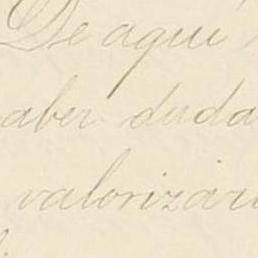 De aqui
aber duda
valorizar